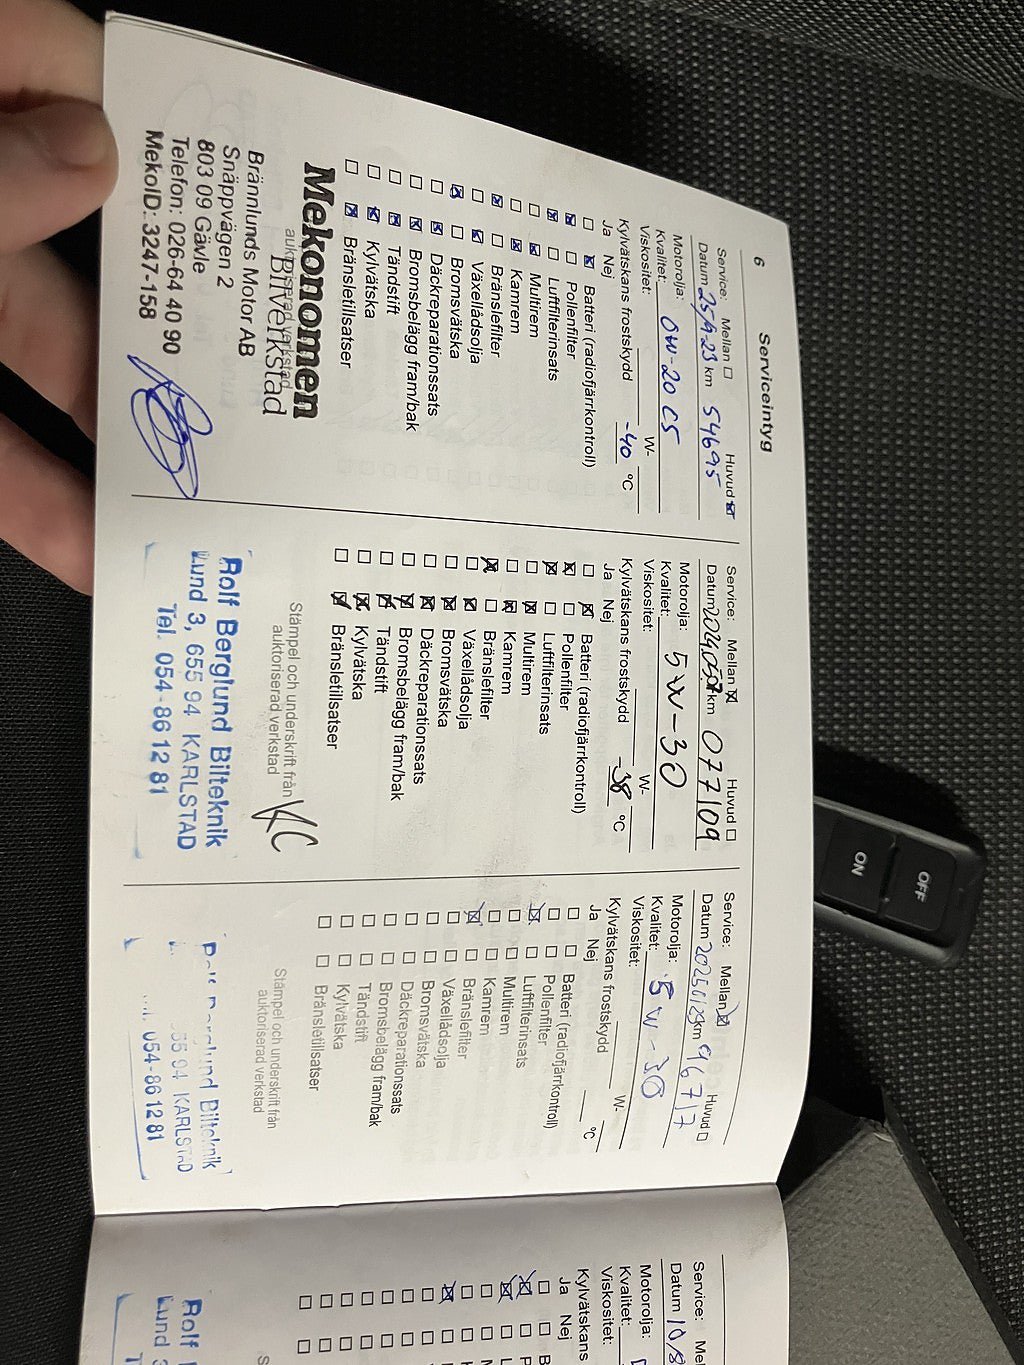 6
Serviceintyg
Service: Mellan Huvud
Datum 25/9-23 km 54695
Motorolja:
Kvalitet: 0W-20 C5
Viskositet: W-
Kylvätskans frostskydd -40 °C
Ja Nej
Batteri (radiofjärrkontroll)
Pollenfilter
Luftfilterinsats
Multirem
Kamrem
Bränslefilter
Växellådsolja
Bromsvätska
Däckreparationssats
Bromsbelägg fram/bak
Tändstift
Kylvätska
Bränsletillsatser
Mekonomen
auktoriserad verkstad
Bilverkstad
Brännlunds Motor AB
Snäppvägen 2
803 09 Gävle
Telefon: 026-64 40 90
MekoID: 3247-158
Service: Mellan Huvud
Datum km 077109
Motorolja:
Kvalitet: 5W-30
Viskositet: W-
Kylvätskans frostskydd -38 °C
Ja Nej
Batteri (radiofjärrkontroll)
Pollenfilter
Luftfilterinsats
Multirem
Kamrem
Bränslefilter
Växellådsolja
Bromsvätska
Däckreparationssats
Bromsbelägg fram/bak
Tändstift
Kylvätska
Bränsletillsatser
Stämpel och underskrift från
auktoriserad verkstad
Rolf Berglund Bilteknik
Lund 3, 655 94 KARLSTAD
Tel. 054-86 12 81
Service: Mellan Huvud
Datum km 96717
Motorolja:
Kvalitet: 5W-30
Viskositet: W-
Kylvätskans frostskydd °C
Ja Nej
Batteri (radiofjärrkontroll)
Pollenfilter
Luftfilterinsats
Multirem
Kamrem
Bränslefilter
Växellådsolja
Bromsvätska
Däckreparationssats
Bromsbelägg fram/bak
Tändstift
Kylvätska
Bränsletillsatser
Stämpel och underskrift från
auktoriserad verkstad
Rolf Berglund Bilteknik
55 94 KARLSTAD
054-86 12 81
Service:
Datum 10/8
Motorolja:
Kvalitet:
Viskositet:
Kylvätskans
Ja Nej
Rolf
Lund 3
OFF
ON